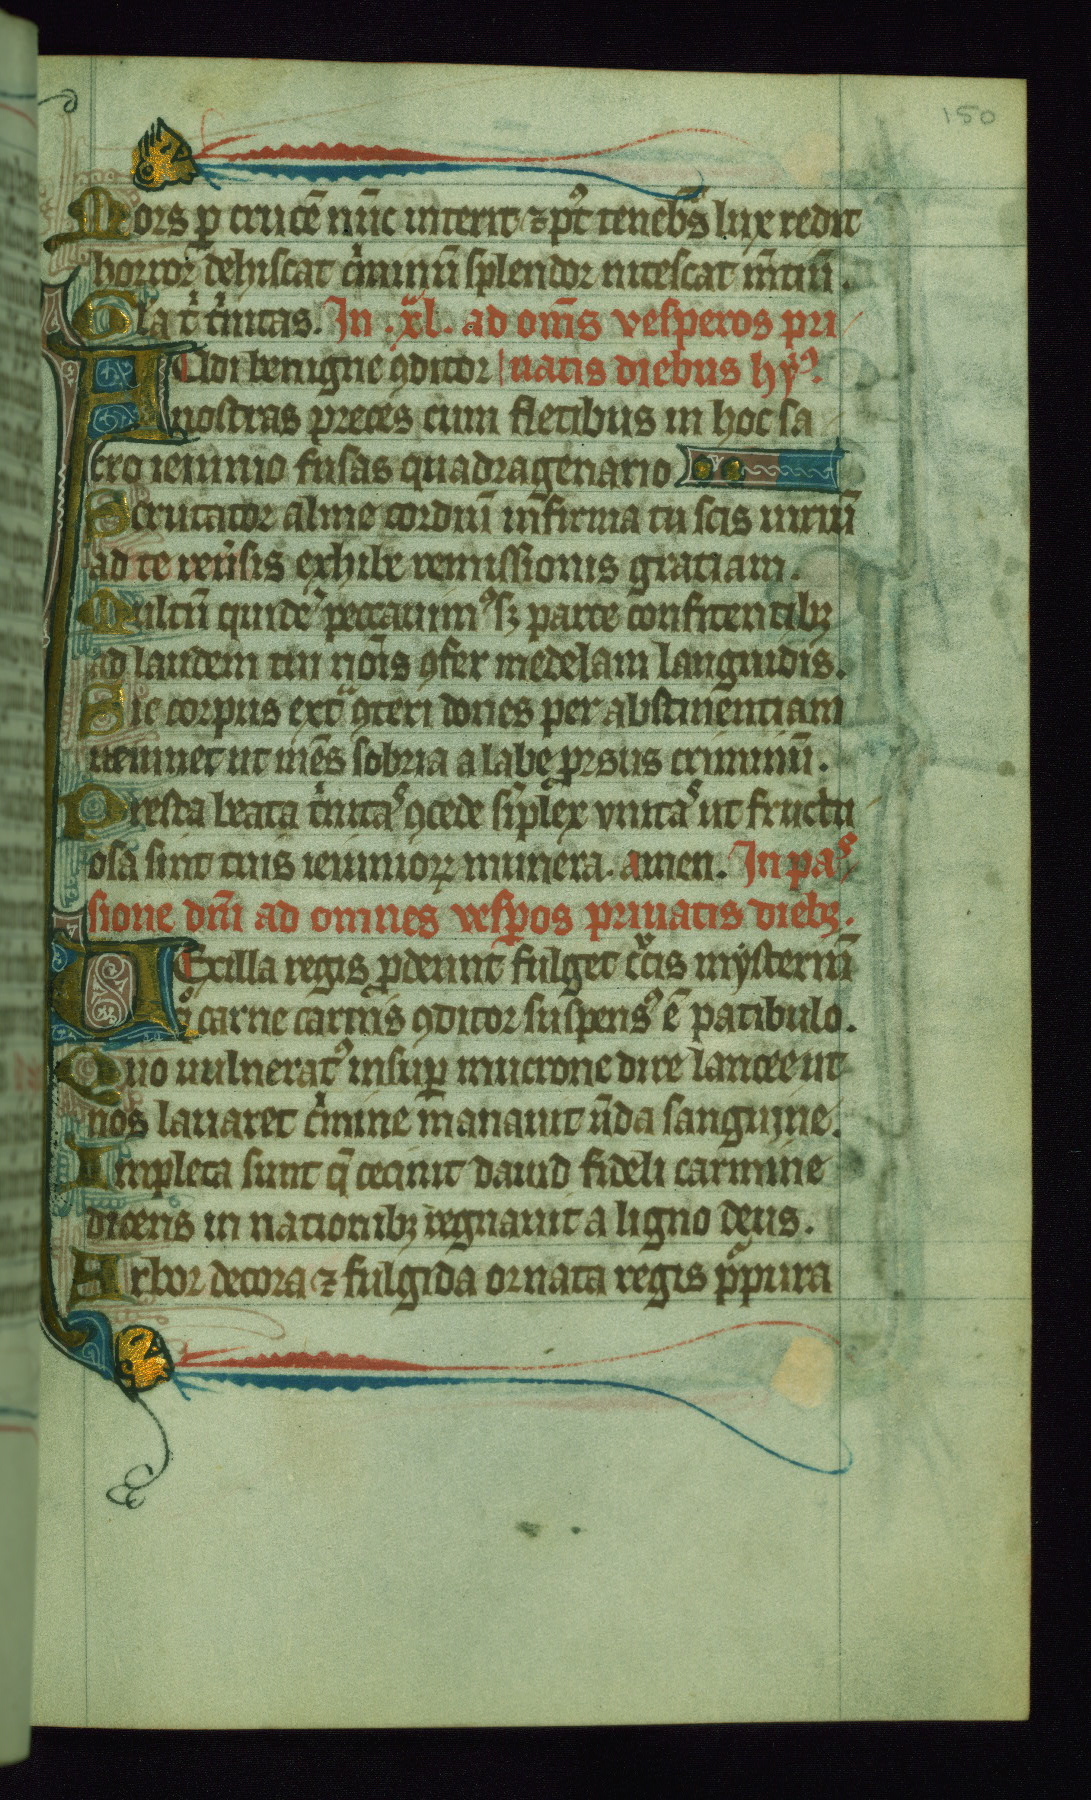 150
Mors ꝑ crucē nūc interit ⁊ pꝰt tenebᷤ lux redit
horror dehiscat cͥminū splendor nitescat mētiū.
Gła tͥ tͥnitas. In .xl. ad om̄s vesperos pri
AUdi benigne ꝯditor uatis diebus hyꝰ.
nostras preces cum fletibus in hoc sa
cro ieiunio fusas quadragenario
Scrutator alme cordiū infirma tu scis uiriū
ad te reūsis exhibe remissionis gratiam.
Multū quidē peccauimꝰ sꝫ parce confitentibꝫ
ad laudem tui noīs ꝯfer medelam languidis.
Sic corpus extᵃ ꝯteri dones per abstinentiam
ieiunet ut mēs sobria a labe ꝓrsus criminū.
Presta beata tͥnitaˢ ꝯcede simplex vnitaˢ ut fructu
osa sint tuis ieiuniorꝝ munera. amen. In paˢ
sione dn̄i ad omnes vesꝑos priuatis diebꝫ.
UExilla regis ꝓdeunt fulget cͣcis mẏsteriū
qͦ carne carnis ꝯditor suspensꝰ ē patibulo.
Quo uulneratꝰ insuꝑ mucrone dire lancee ut
nos lauaret cͥmine manauit ūda sanguine.
Impleta sunt q̄ cecinit dauid fideli carmine
dicens in nationibꝫ regnauit a ligno deus.
Arbor decora ⁊ fulgida ornata regis pᷣpura